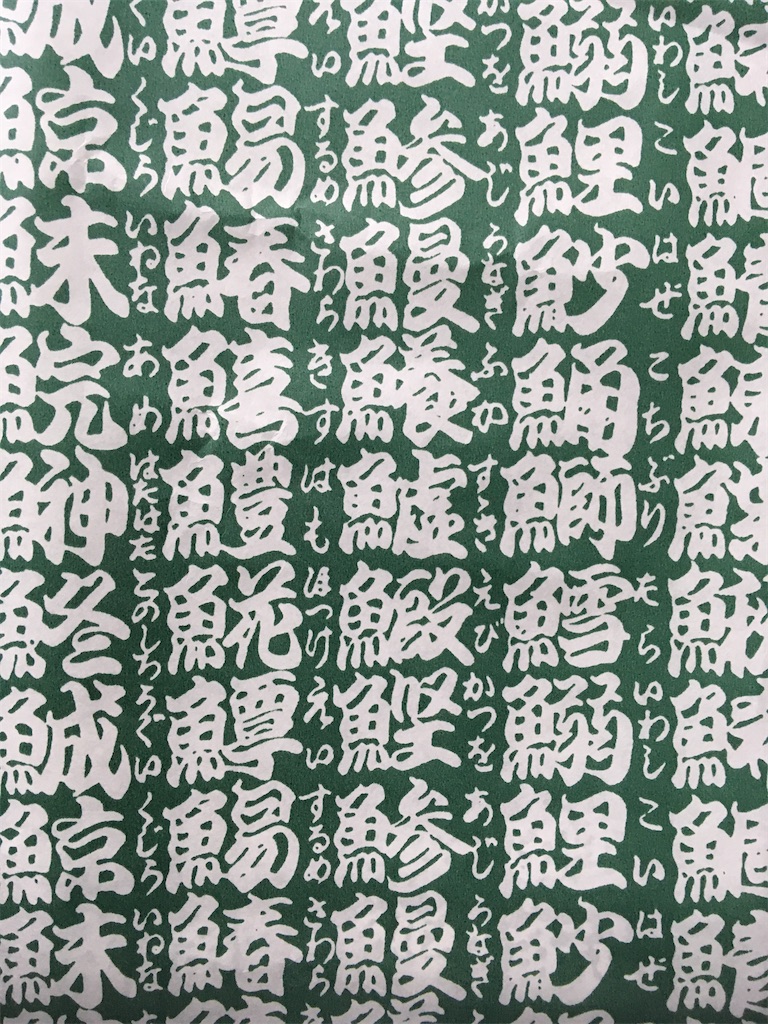 鰯鯉魦鯒鰤鱈鰯鯉魦
いわし こい はぜ こち ぶり たら いわし こい はぜ
鰹鯵鰻鱶鱸鰕鰹鯵鰻
かつを あじ うなぎ ふか すゞき えび かつを あじ うなぎ
鱏鰑鰆鱚鱧𩸽鱏鰑鰆
えい するめ さわら きす はも ほつけ えい するめ さわら
鯎鯨鮇鯇鰰鮗鯎鯨鮇
ぐい くじら いわな あめ はたはた このしろ うぐい くじら いわな